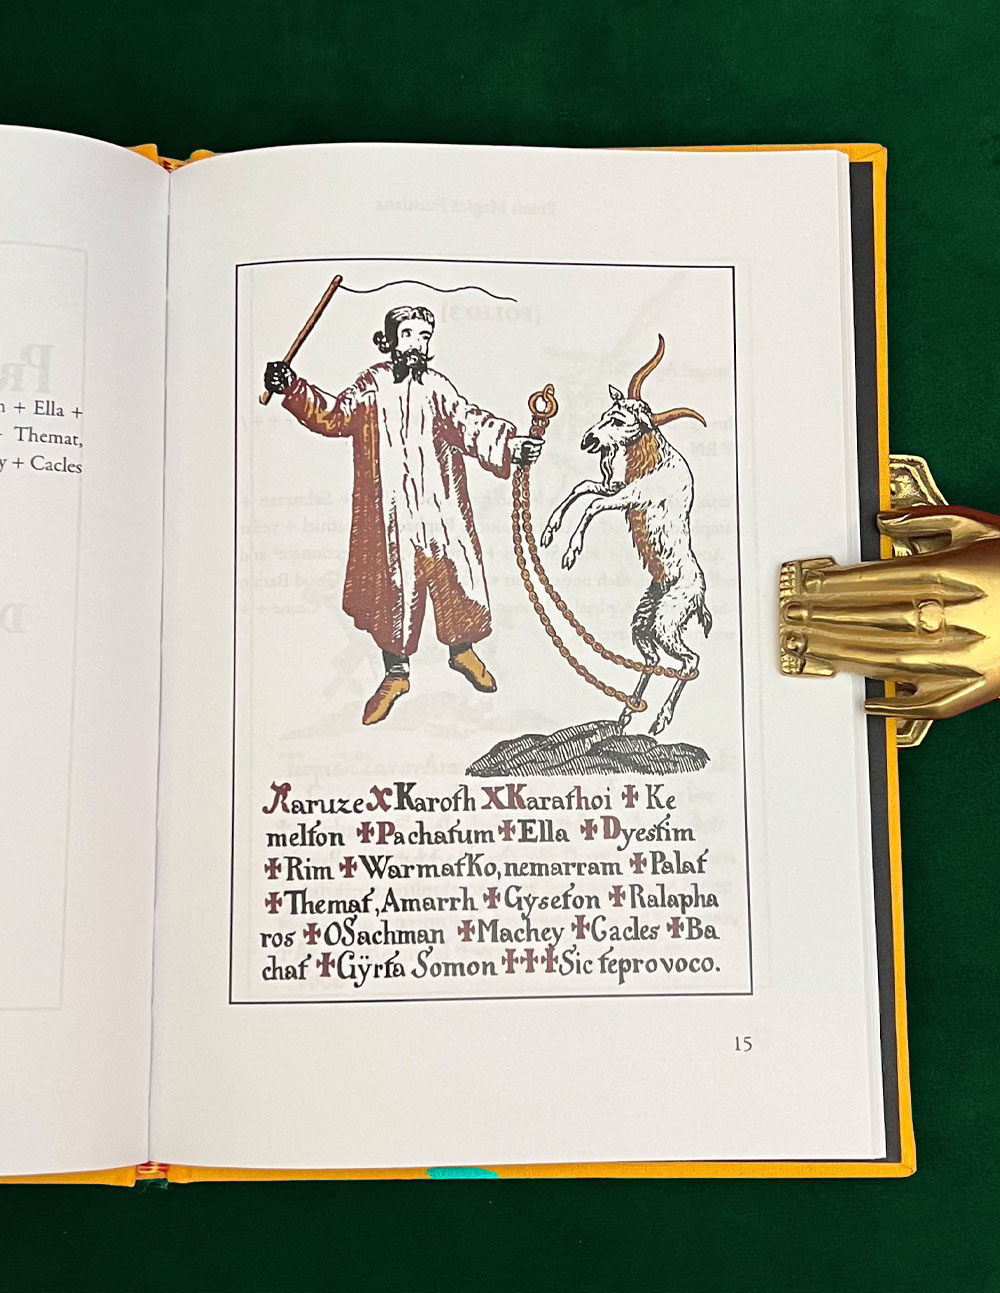 + Ella +
Themat,
+ Cacles
Karuze X Karoth X Karathoi ✠ Ke
melton ✠ Pachatum ✠ Ella ✠ Dyestim
✠ Rim ✠ Warmatko, nemarram ✠ Palaf
✠ Themat, Amarrh ✠ Gÿseton ✠ Ralapha
ros ✠ OSachman ✠ Machey ✠ Cacles ✠ Ba
chaf ✠ Gÿrta Somon ✠✠✠ Sic te provoco.
15